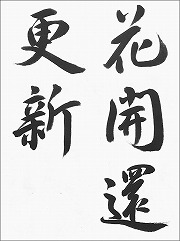 花開還
更新